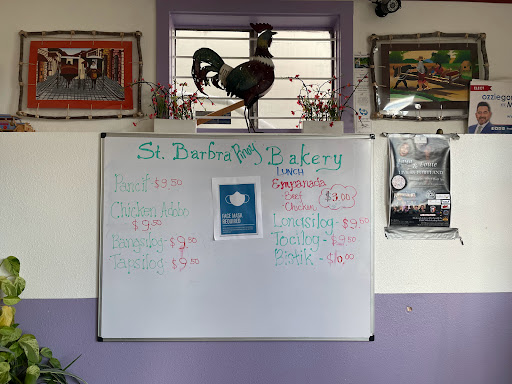 St. Barbra Pinoy Bakery
Pancit - $9.50
Chicken Adobo
- $9.50
Bangsilog - $9.50
Tapsilog - $9.50
FACE MASK
REQUIRED
LUNCH
Empanada
Beef
Chicken
$3.00
Longsilog - $9.50
Tocilog - $9.50
Bistik - $10.00
ELECT